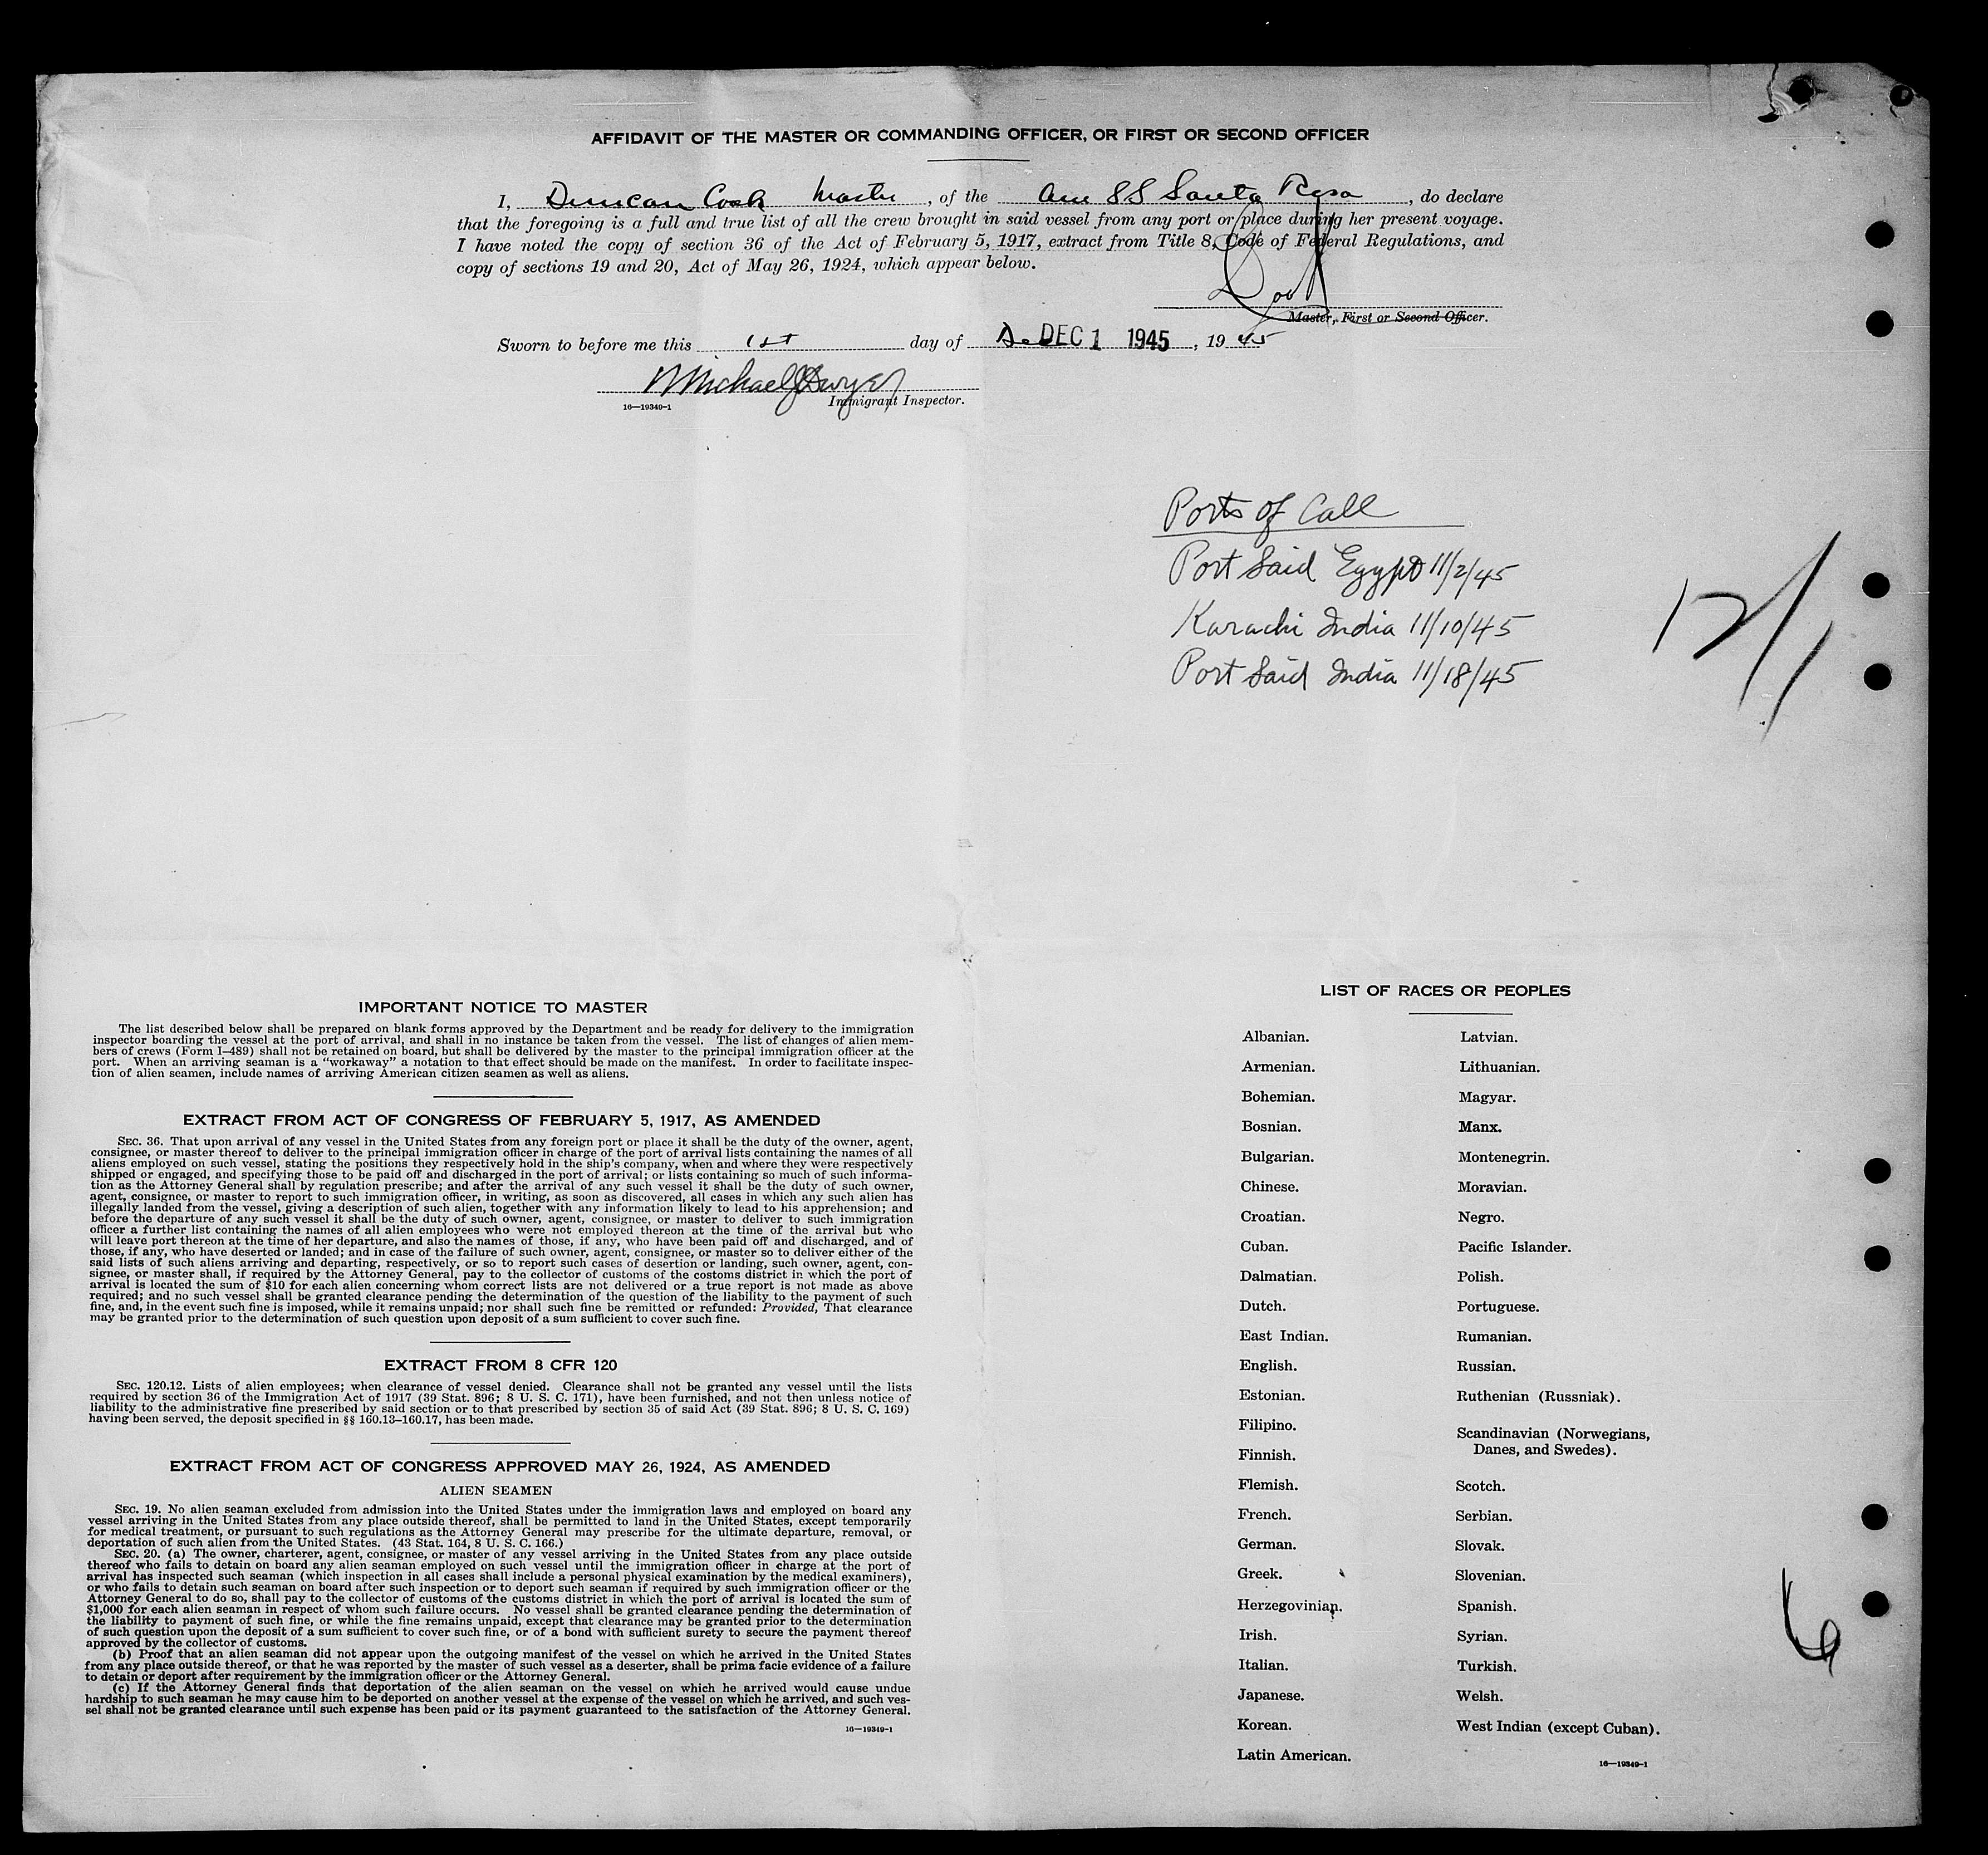 AFFIDAVIT OF THE MASTER OR COMMANDING OFFICER, OR FIRST OR SECOND OFFICER
I, Duncan Cook Master, of the Am SS Santa Rosa, do declare
that the foregoing is a full and true list of all the crew brought in said vessel from any port or place during her present voyage.
I have noted the copy of section 36 of the Act of February 5, 1917, extract from Title 8, Code of Federal Regulations, and
copy of sections 19 and 20, Act of May 26, 1924, which appear below.
D Cook
Master, First or Second Officer.
Sworn to before me this 1st day of De DEC 1 1945, 19 45
Michael J Dwyer
16—19349-1 Immigrant Inspector.
Ports of Call
Port Said Egypt 11/2/45
Karachi India 11/10/45
Port Said India 11/18/45
12/1
IMPORTANT NOTICE TO MASTER
The list described below shall be prepared on blank forms approved by the Department and be ready for delivery to the immigration
inspector boarding the vessel at the port of arrival, and shall in no instance be taken from the vessel. The list of changes of alien mem-
bers of crews (Form I-489) shall not be retained on board, but shall be delivered by the master to the principal immigration officer at the
port. When an arriving seaman is a "workaway" a notation to that effect should be made on the manifest. In order to facilitate inspec-
tion of alien seamen, include names of arriving American citizen seamen as well as aliens.
EXTRACT FROM ACT OF CONGRESS OF FEBRUARY 5, 1917, AS AMENDED
SEC. 36. That upon arrival of any vessel in the United States from any foreign port or place it shall be the duty of the owner, agent,
consignee, or master thereof to deliver to the principal immigration officer in charge of the port of arrival lists containing the names of all
aliens employed on such vessel, stating the positions they respectively hold in the ship's company, when and where they were respectively
shipped or engaged, and specifying those to be paid off and discharged in the port of arrival; or lists containing so much of such informa-
tion as the Attorney General shall by regulation prescribe; and after the arrival of any such vessel it shall be the duty of such owner,
agent, consignee, or master to report to such immigration officer, in writing, as soon as discovered, all cases in which any such alien has
illegally landed from the vessel, giving a description of such alien, together with any information likely to lead to his apprehension; and
before the departure of any such vessel it shall be the duty of such owner, agent, consignee, or master to deliver to such immigration
officer a further list containing the names of all alien employees who were not employed thereon at the time of the arrival but who
will leave port thereon at the time of her departure, and also the names of those, if any, who have been paid off and discharged, and of
those, if any, who have deserted or landed; and in case of the failure of such owner, agent, consignee, or master so to deliver either of the
said lists of such aliens arriving and departing, respectively, or so to report such cases of desertion or landing, such owner, agent, con-
signee, or master shall, if required by the Attorney General, pay to the collector of customs of the costoms district in which the port of
arrival is located the sum of $10 for each alien concerning whom correct lists are not delivered or a true report is not made as above
required; and no such vessel shall be granted clearance pending the determination of the question of the liability to the payment of such
fine, and, in the event such fine is imposed, while it remains unpaid; nor shall such fine be remitted or refunded: Provided, That clearance
may be granted prior to the determination of such question upon deposit of a sum sufficient to cover such fine.
EXTRACT FROM 8 CFR 120
SEC. 120.12. Lists of alien employees; when clearance of vessel denied. Clearance shall not be granted any vessel until the lists
required by section 36 of the Immigration Act of 1917 (39 Stat. 896; 8 U. S. C. 171), have been furnished, and not then unless notice of
liability to the administrative fine prescribed by said section or to that prescribed by section 35 of said Act (39 Stat. 896; 8 U. S. C. 169)
having been served, the deposit specified in §§ 160.13–160.17, has been made.
EXTRACT FROM ACT OF CONGRESS APPROVED MAY 26, 1924, AS AMENDED
ALIEN SEAMEN
SEC. 19. No alien seaman excluded from admission into the United States under the immigration laws and employed on board any
vessel arriving in the United States from any place outside thereof, shall be permitted to land in the United States, except temporarily
for medical treatment, or pursuant to such regulations as the Attorney General may prescribe for the ultimate departure, removal, or
deportation of such alien from the United States. (43 Stat. 164, 8 U. S. C. 166.)
SEC. 20. (a) The owner, charterer, agent, consignee, or master of any vessel arriving in the United States from any place outside
thereof who fails to detain on board any alien seaman employed on such vessel until the immigration officer in charge at the port of
arrival has inspected such seaman (which inspection in all cases shall include a personal physical examination by the medical examiners),
or who fails to detain such seaman on board after such inspection or to deport such seaman if required by such immigration officer or the
Attorney General to do so, shall pay to the collector of customs of the customs district in which the port of arrival is located the sum of
$1,000 for each alien seaman in respect of whom such failure occurs. No vessel shall be granted clearance pending the determination of
the liability to payment of such fine, or while the fine remains unpaid, except that clearance may be granted prior to the determination
of such question upon the deposit of a sum sufficient to cover such fine, or of a bond with sufficient surety to secure the payment thereof
approved by the collector of customs.
(b) Proof that an alien seaman did not appear upon the outgoing manifest of the vessel on which he arrived in the United States
from any place outside thereof, or that he was reported by the master of such vessel as a deserter, shall be prima facie evidence of a failure
to detain or deport after requirement by the immigration officer or the Attorney General.
(c) If the Attorney General finds that deportation of the alien seaman on the vessel on which he arrived would cause undue
hardship to such seaman he may cause him to be deported on another vessel at the expense of the vessel on which he arrived, and such ves-
sel shall not be granted clearance until such expense has been paid or its payment guaranteed to the satisfaction of the Attorney General.
16—19349-1
LIST OF RACES OR PEOPLES
Albanian.
Armenian.
Bohemian.
Bosnian.
Bulgarian.
Chinese.
Croatian.
Cuban.
Dalmatian.
Dutch.
East Indian.
English.
Estonian.
Filipino.
Finnish.
Flemish.
French.
German.
Greek.
Herzegovinian.
Irish.
Italian.
Japanese.
Korean.
Latin American.
Latvian.
Lithuanian.
Magyar.
Manx.
Montenegrin.
Moravian.
Negro.
Pacific Islander.
Polish.
Portuguese.
Rumanian.
Russian.
Ruthenian (Russniak).
Scandinavian (Norwegians,
Danes, and Swedes).
Scotch.
Serbian.
Slovak.
Slovenian.
Spanish.
Syrian.
Turkish.
Welsh.
West Indian (except Cuban).
16—19349-1
6